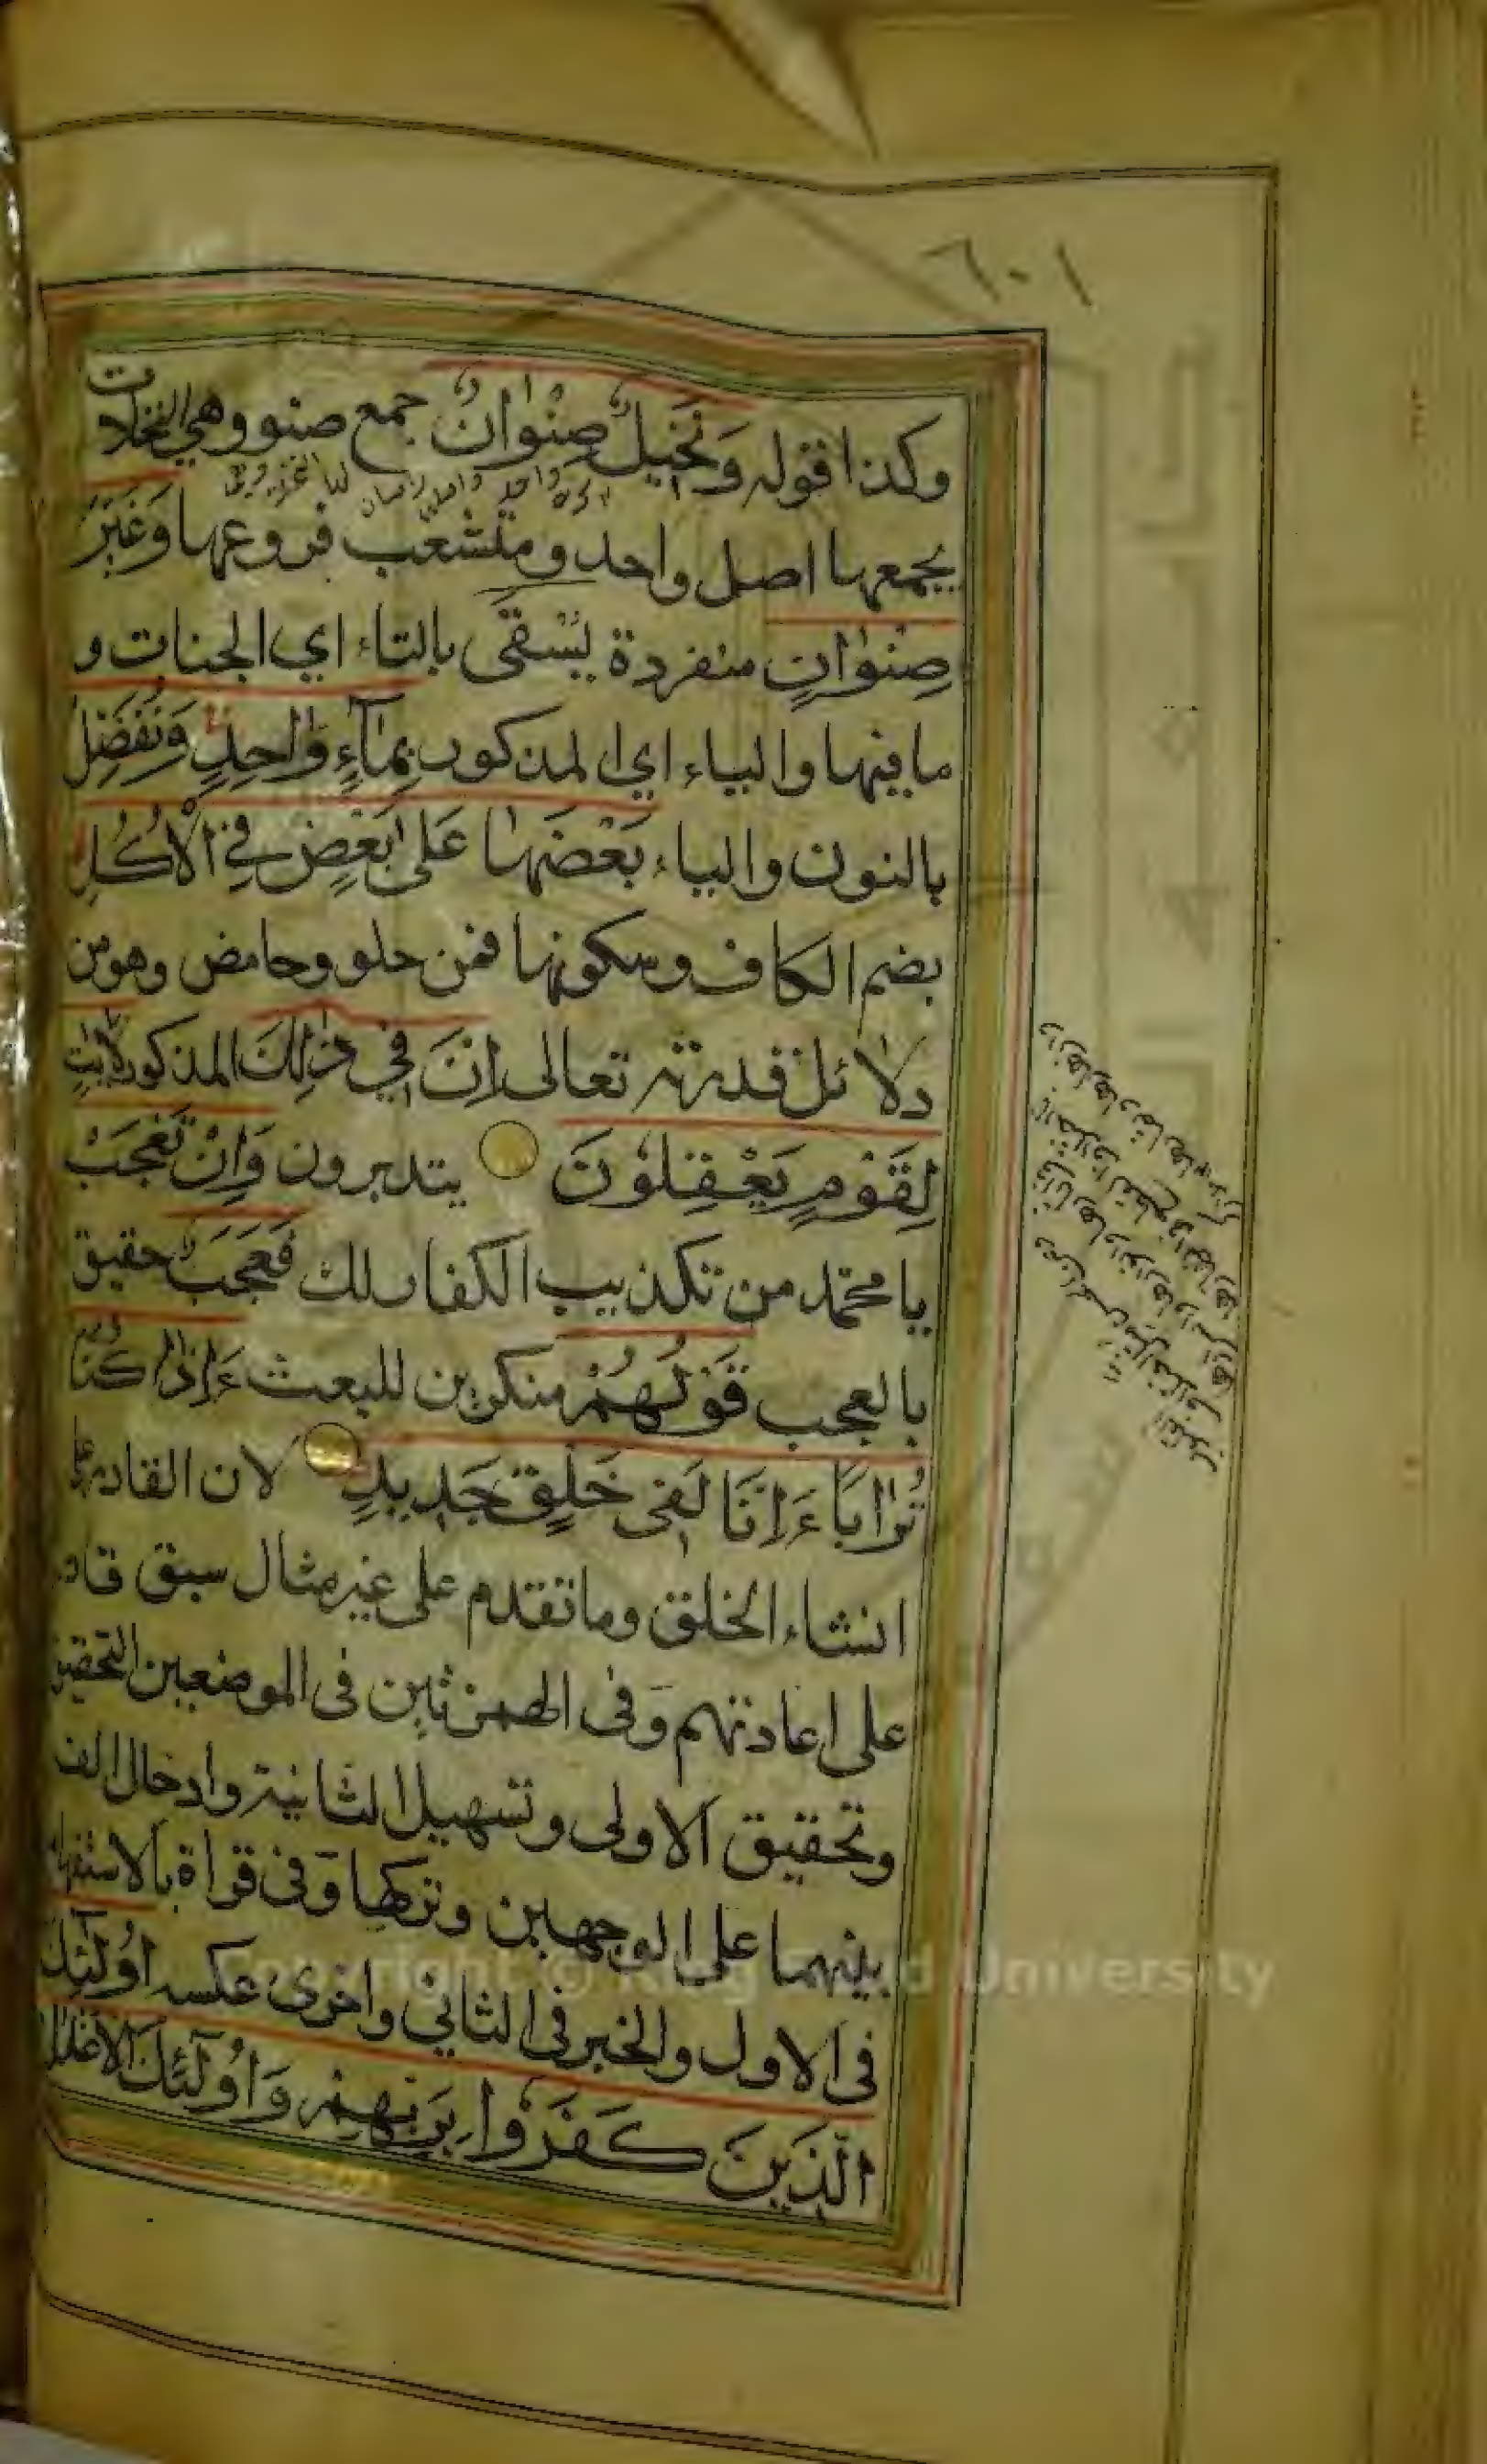 ٦٠١
وكذا قوله وَنَخِيلٌ صِنْوَانٌ جمع صنو وهي النخلات
يجمعها اصل واحد و متشعب فروعها وَغَيْرُ
صِنْوَانٍ منفردة يُسْقَى بالتاء اي الجنات و
ما فيها والياء اي المذكور بِمَآءٍ وَّاحِدٍ وَنُفَضِّلُ
بالنون والياء بَعْضَهَا عَلَى بَعْضٍ فِي الْاُكُلِ
بضم الكاف وسكونها فمن حلو وحامض وهو من
دلائل قدرته تعالى اِنَّ فِي ذٰلِكَ المذكور لَاٰيٰتٍ
لِقَوْمٍ يَعْقِلُوْنَ يتدبرون وَاِنْ تَعْجَبْ
يا محمّد من تكذيب الكفار لك فَعَجَبٌ حقيق
بالعجب قَوْلُهُمْ منكرين للبعث ءَاِذَا كُنَّا
تُرَابًا ءَاِنَّا لَفِى خَلْقٍ جَدِيدٍ لان القادر على
انشاء الخلق وما تقدم على غير مثال سبق قادر
على اعادتهم وفى الهمزتين فى الموضعين التحقيق
وتحقيق الاولى وتسهيل الثانية وادخال الف
بينهما على الوجهين وتركها وفى قراة بالاستفهام
فى الاول والخبر فى الثاني واخرى عكسه اُولٰٓئِكَ
الَّذِينَ كَفَرُوا بِرَبِّهِمْ وَاُولٰٓئِكَ الْاَغْلَالُ
University